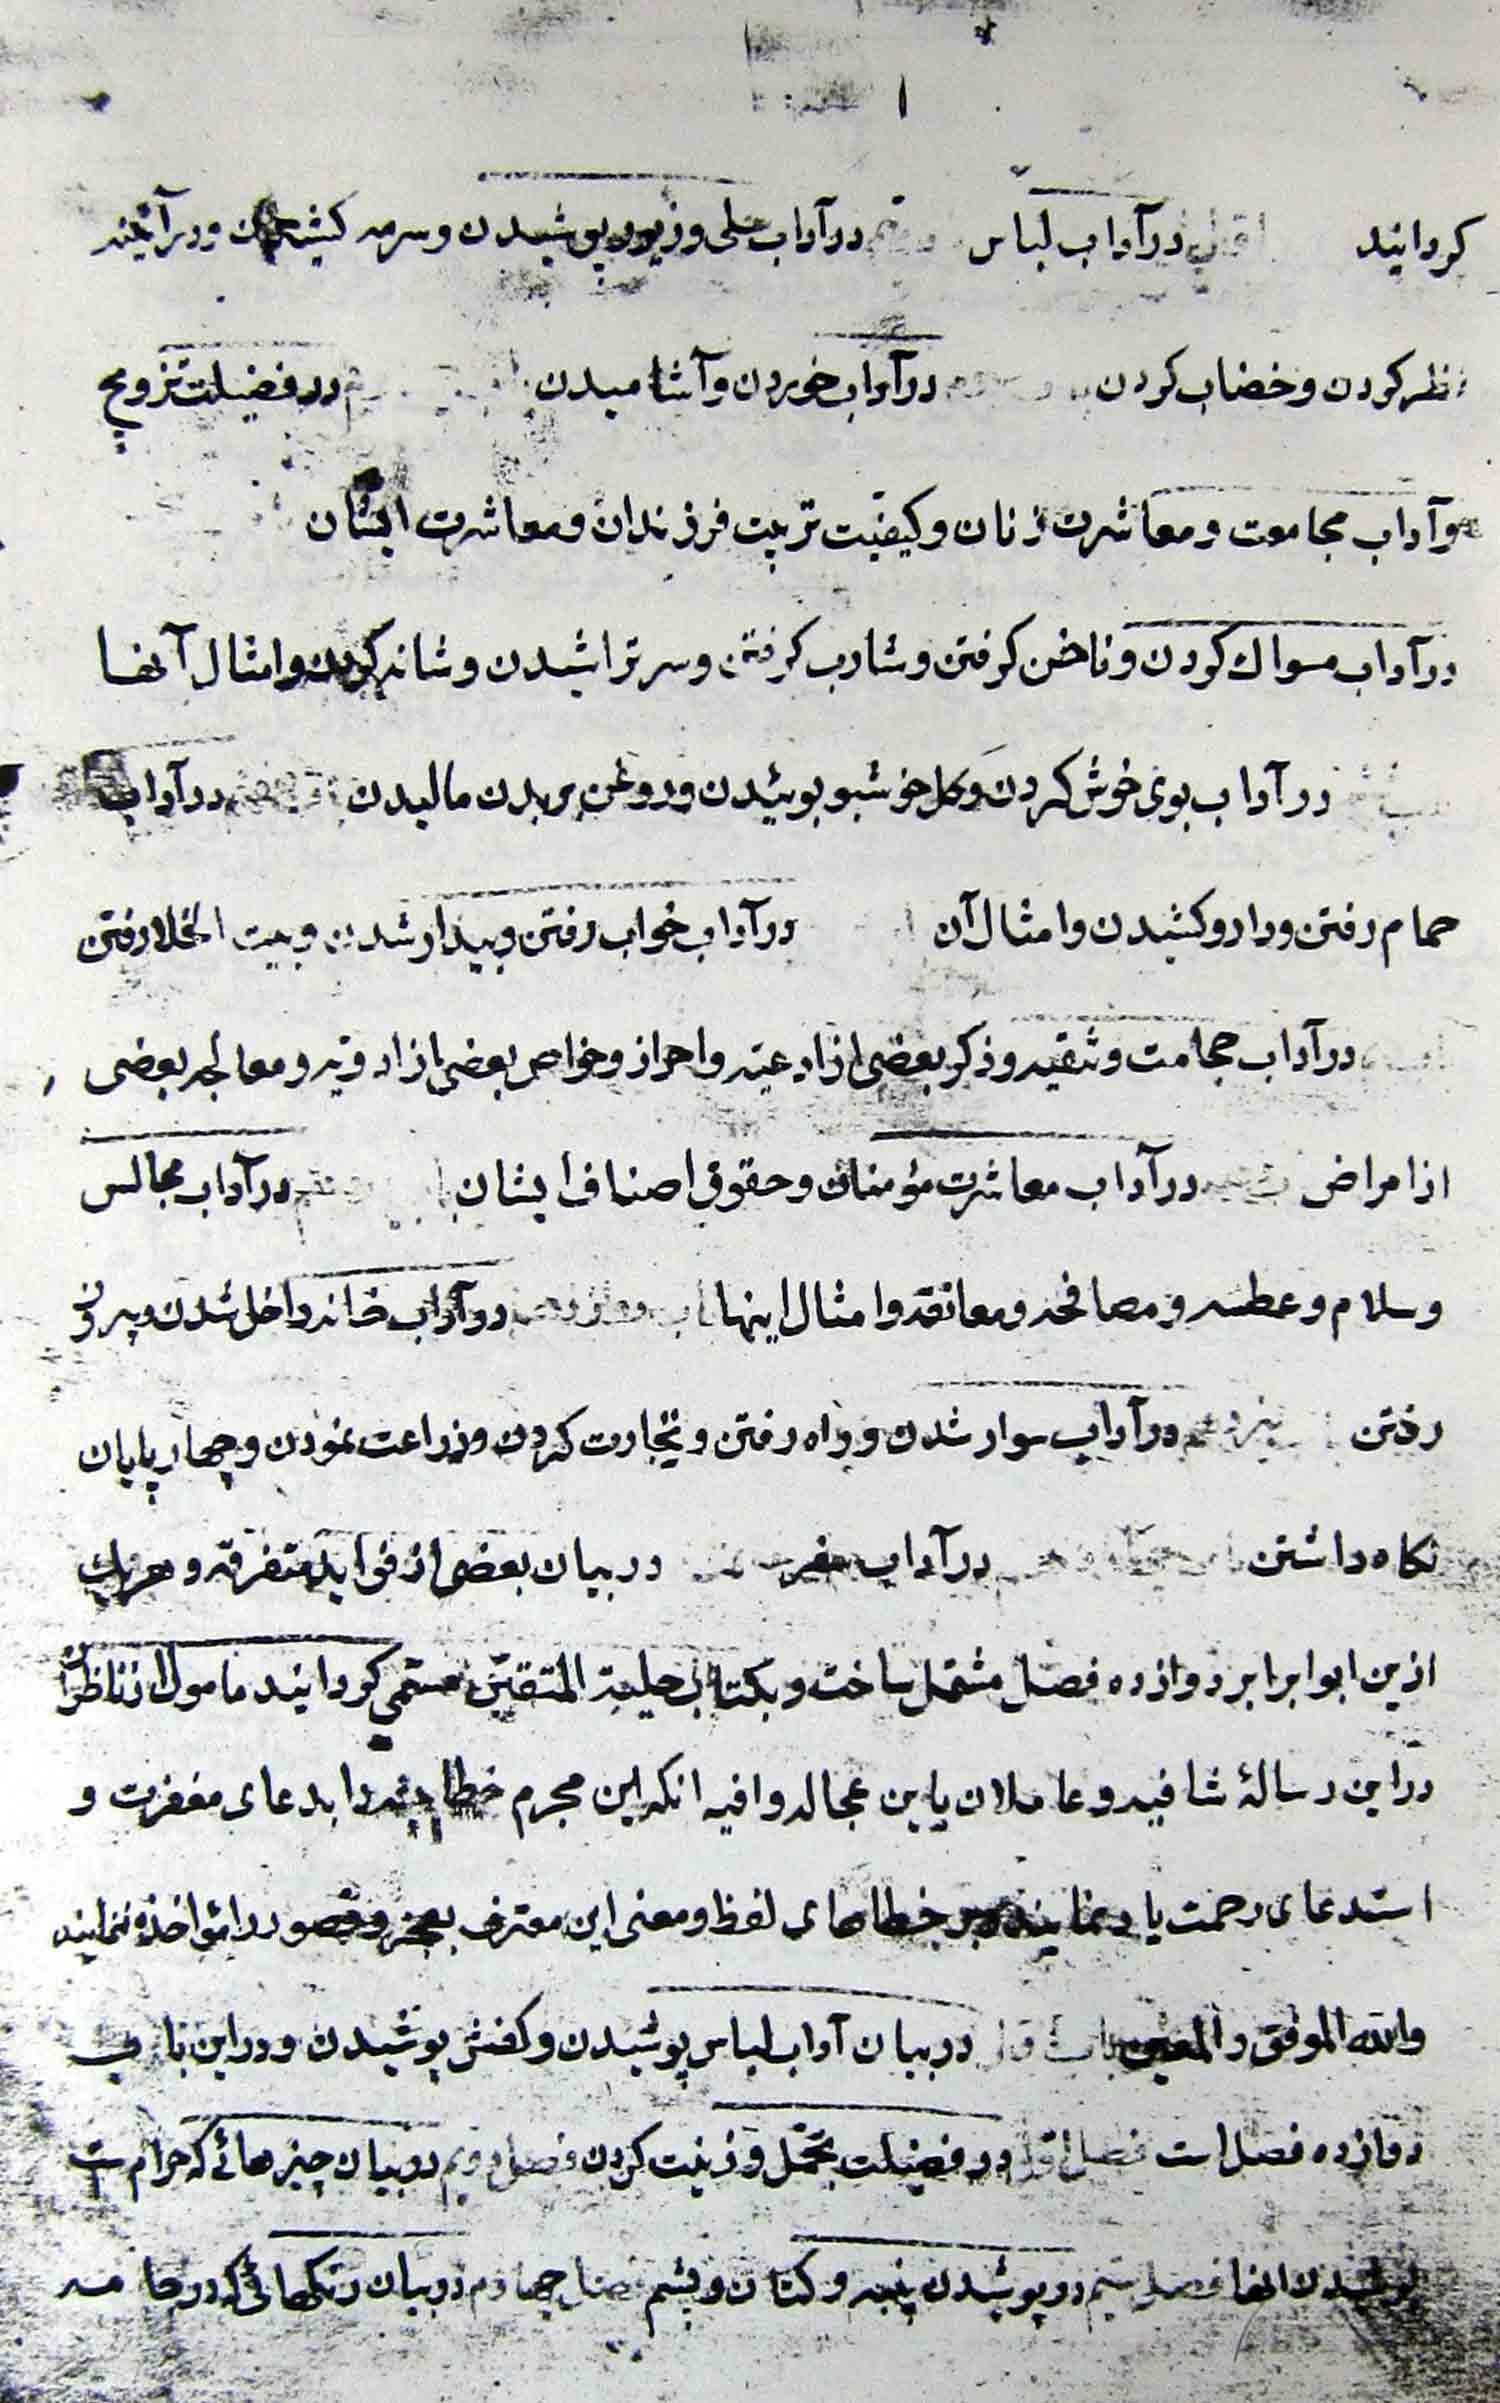 ۱
کردانید اول در آداب لباس در آداب حلی و زیور پوشیدن و سرمه کشیدن و در آئینه
نظر کردن و خضاب کردن در آداب خوردن و آشامیدن در فضیلت تزویج
و آداب مجامعت و معاشرت زنان و کیفیّت تربیت فرزندان و معاشرت ایشان
در آداب مسواك کردن و ناخن کرفتن و شارب کرفتن و سر تراشیدن و شانه کردن و امثال آنها
در آداب بوی خوش کردن و کل خوشبو بوئیدن و روغن بر بدن مالیدن در آداب
حمام رفتن و دارو کشیدن و امثال آن در آداب خواب رفتن و بیدار شدن و بیت الخلا رفتن
در آداب حجامت و تنقیه و ذکر بعضی از ادعیه و احراز و خواص بعضی از ادویه و معالجه بعضی
از امراض در آداب معاشرت مؤمنان و حقوق اصناف ایشان در آداب مجالس
و سلام و عطسه و مصافحه و معانقه و امثال اینها در آداب خانه داخل شدن و بیرون
رفتن در آداب سوار شدن و راه رفتن و تجارت کردن و زراعت نمودن و چهار پایان
نکاه داشتن در آداب سفر در بیان بعضی از فواید متفرقه و هریك
ازین ابواب را بر دوازده فصل مشتمل ساخت و بکتاب حلیة المتقین مسمّی کردانید مامول از ناظران
در این رسالهٔ شافیه و عاملان باین عجاله وافیه انکه این مجرم خطا پیشه را بدعای مغفرت و
استدعای رحمت یاد نمایند و بر خطاهای لفظ و معنی این معترف بعجز و قصور را مؤاخذه ننمایند
والله الموفق و المعین باب اول در بیان آداب لباس پوشیدن و کفش پوشیدن و در این باب
دوازده فصل است فصل اول در فضیلت تجمّل و زینت کردن فصل دویم در بیان چیزهائی که حرام است
پوشیدن انها فصل سیم در پوشیدن پنبه و کتان و پشم فصل چهارم در بیان رنکهائی که در جامه